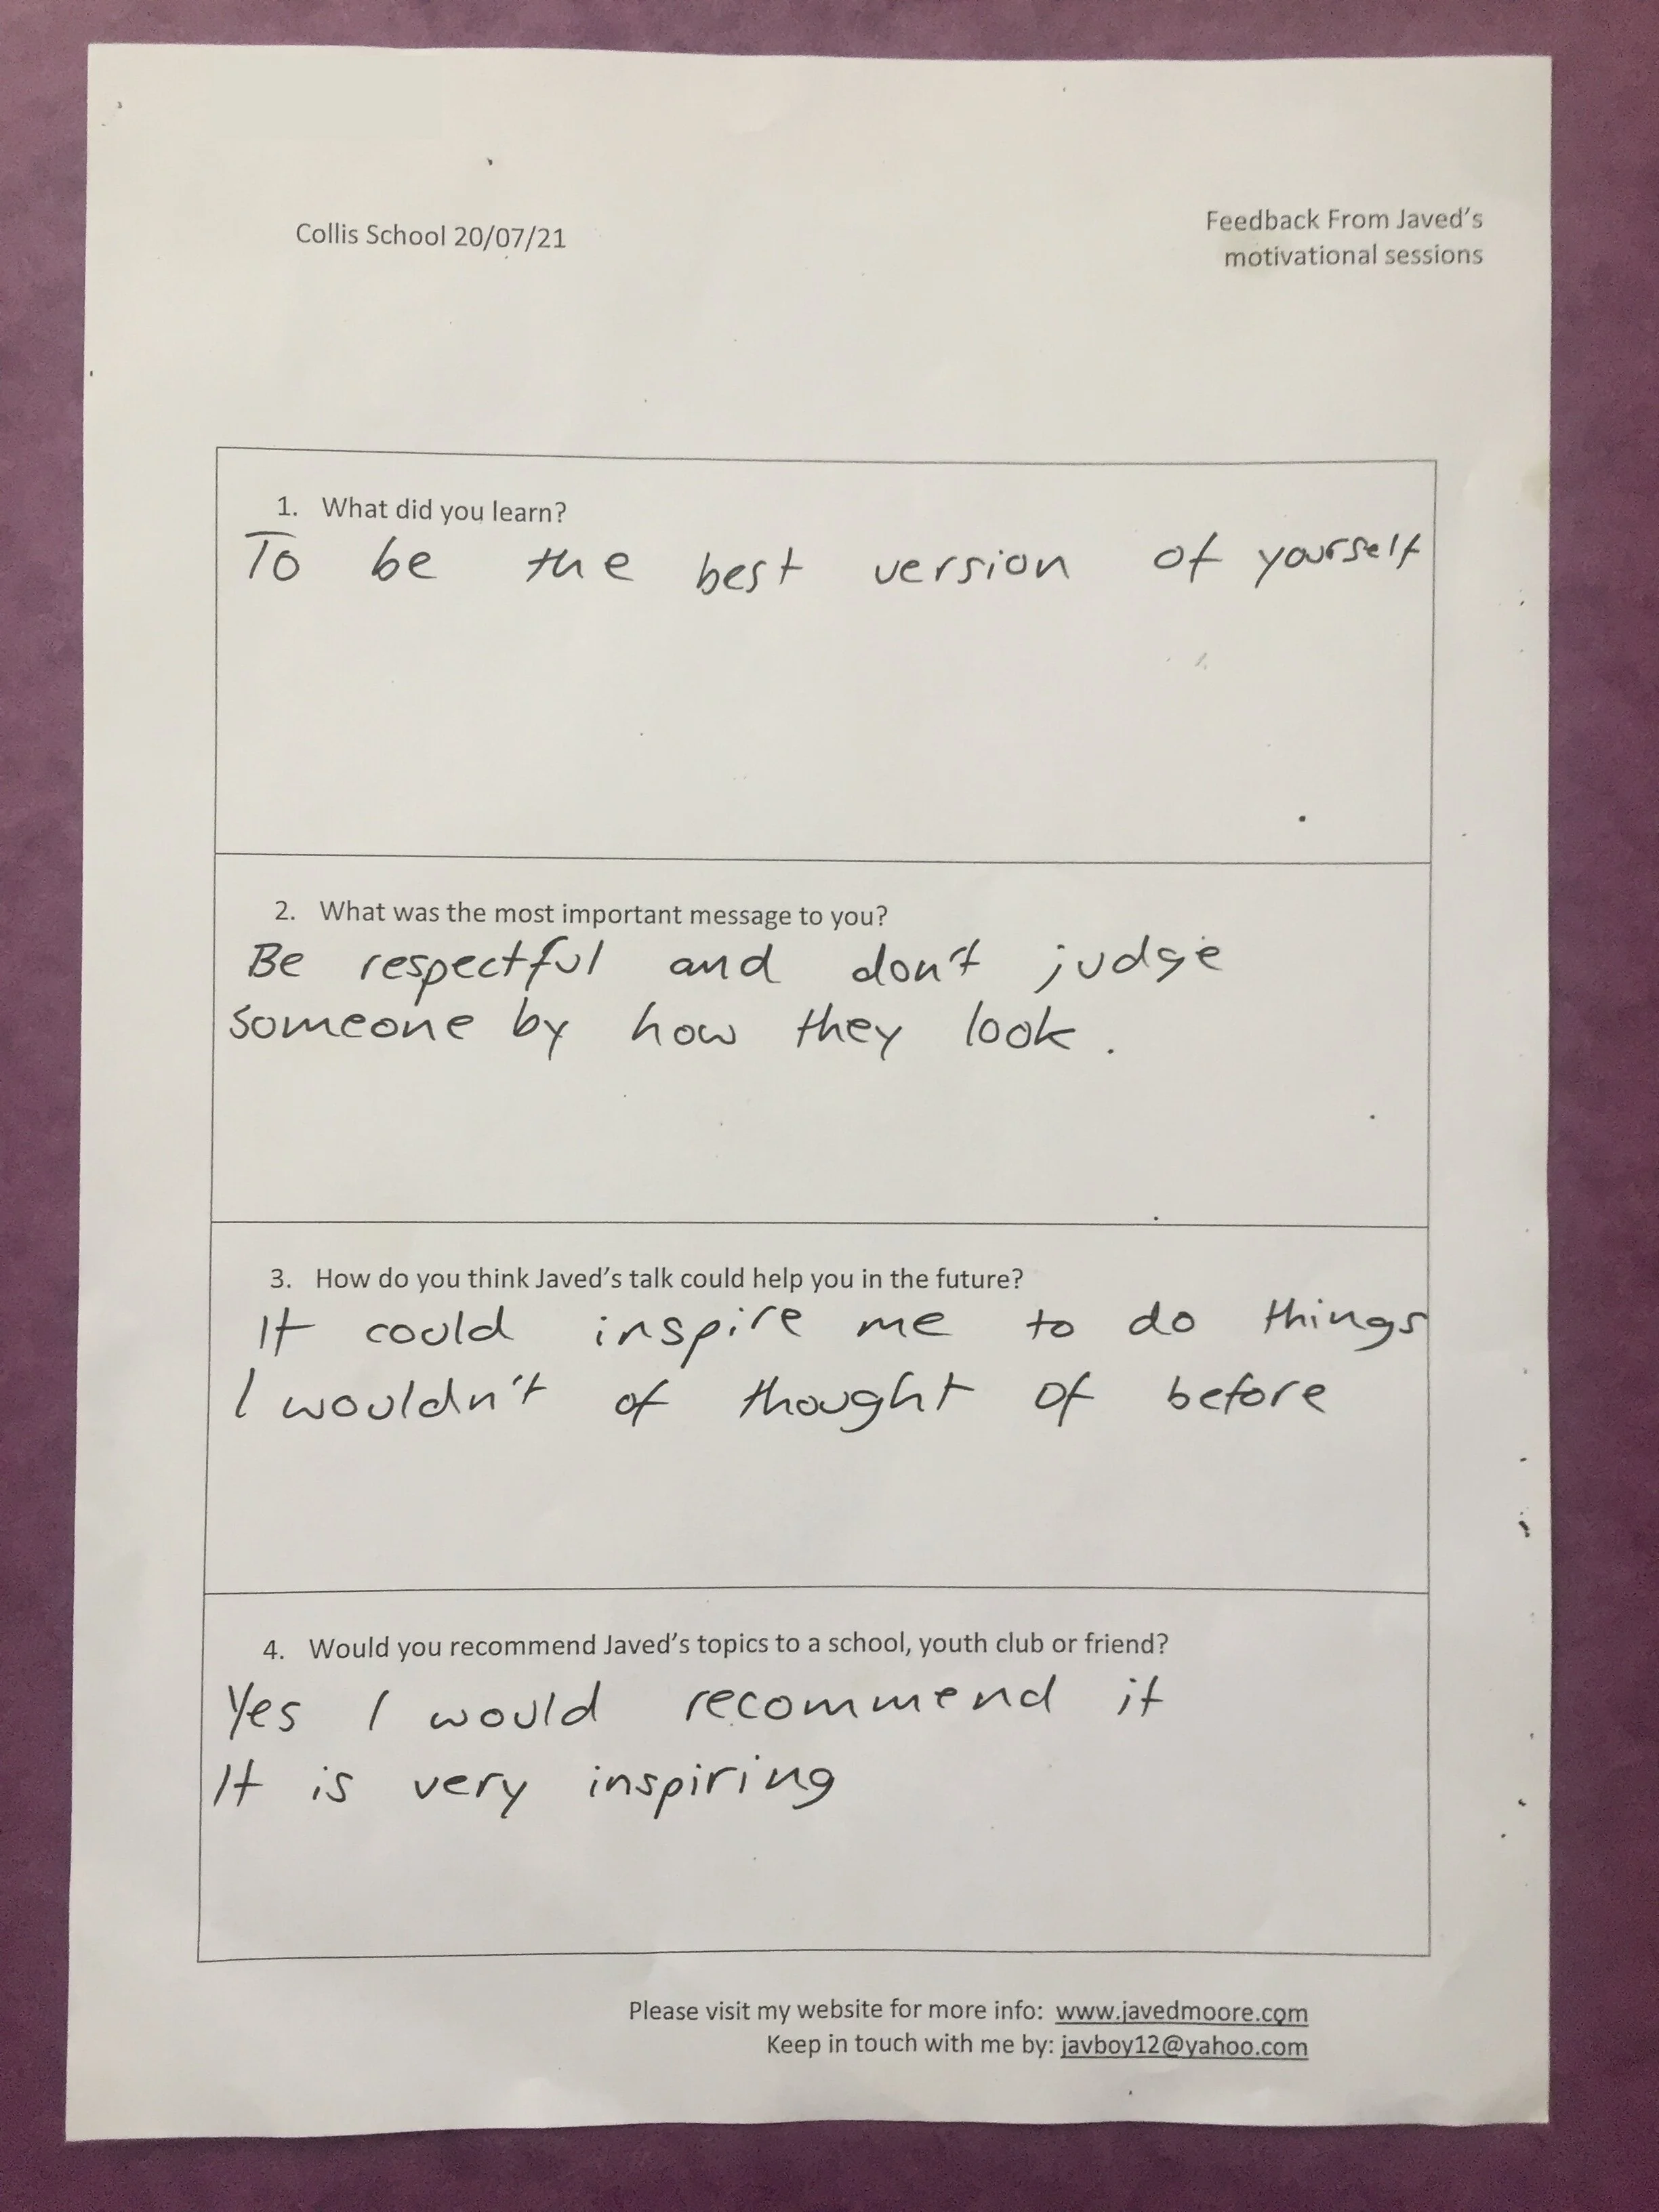 Collis School 20/07/21
Feedback From Javed's
motivational sessions
1. What did you learn?
To be the best version of yourself
2. What was the most important message to you?
Be respectful and don't judge
someone by how they look.
3. How do you think Javed's talk could help you in the future?
It could inspire me to do things
I wouldn't of thought of before
4. Would you recommend Javed's topics to a school, youth club or friend?
Yes I would recommend it
It is very inspiring
Please visit my website for more info: www.javedmoore.com
Keep in touch with me by: javboy12@yahoo.com